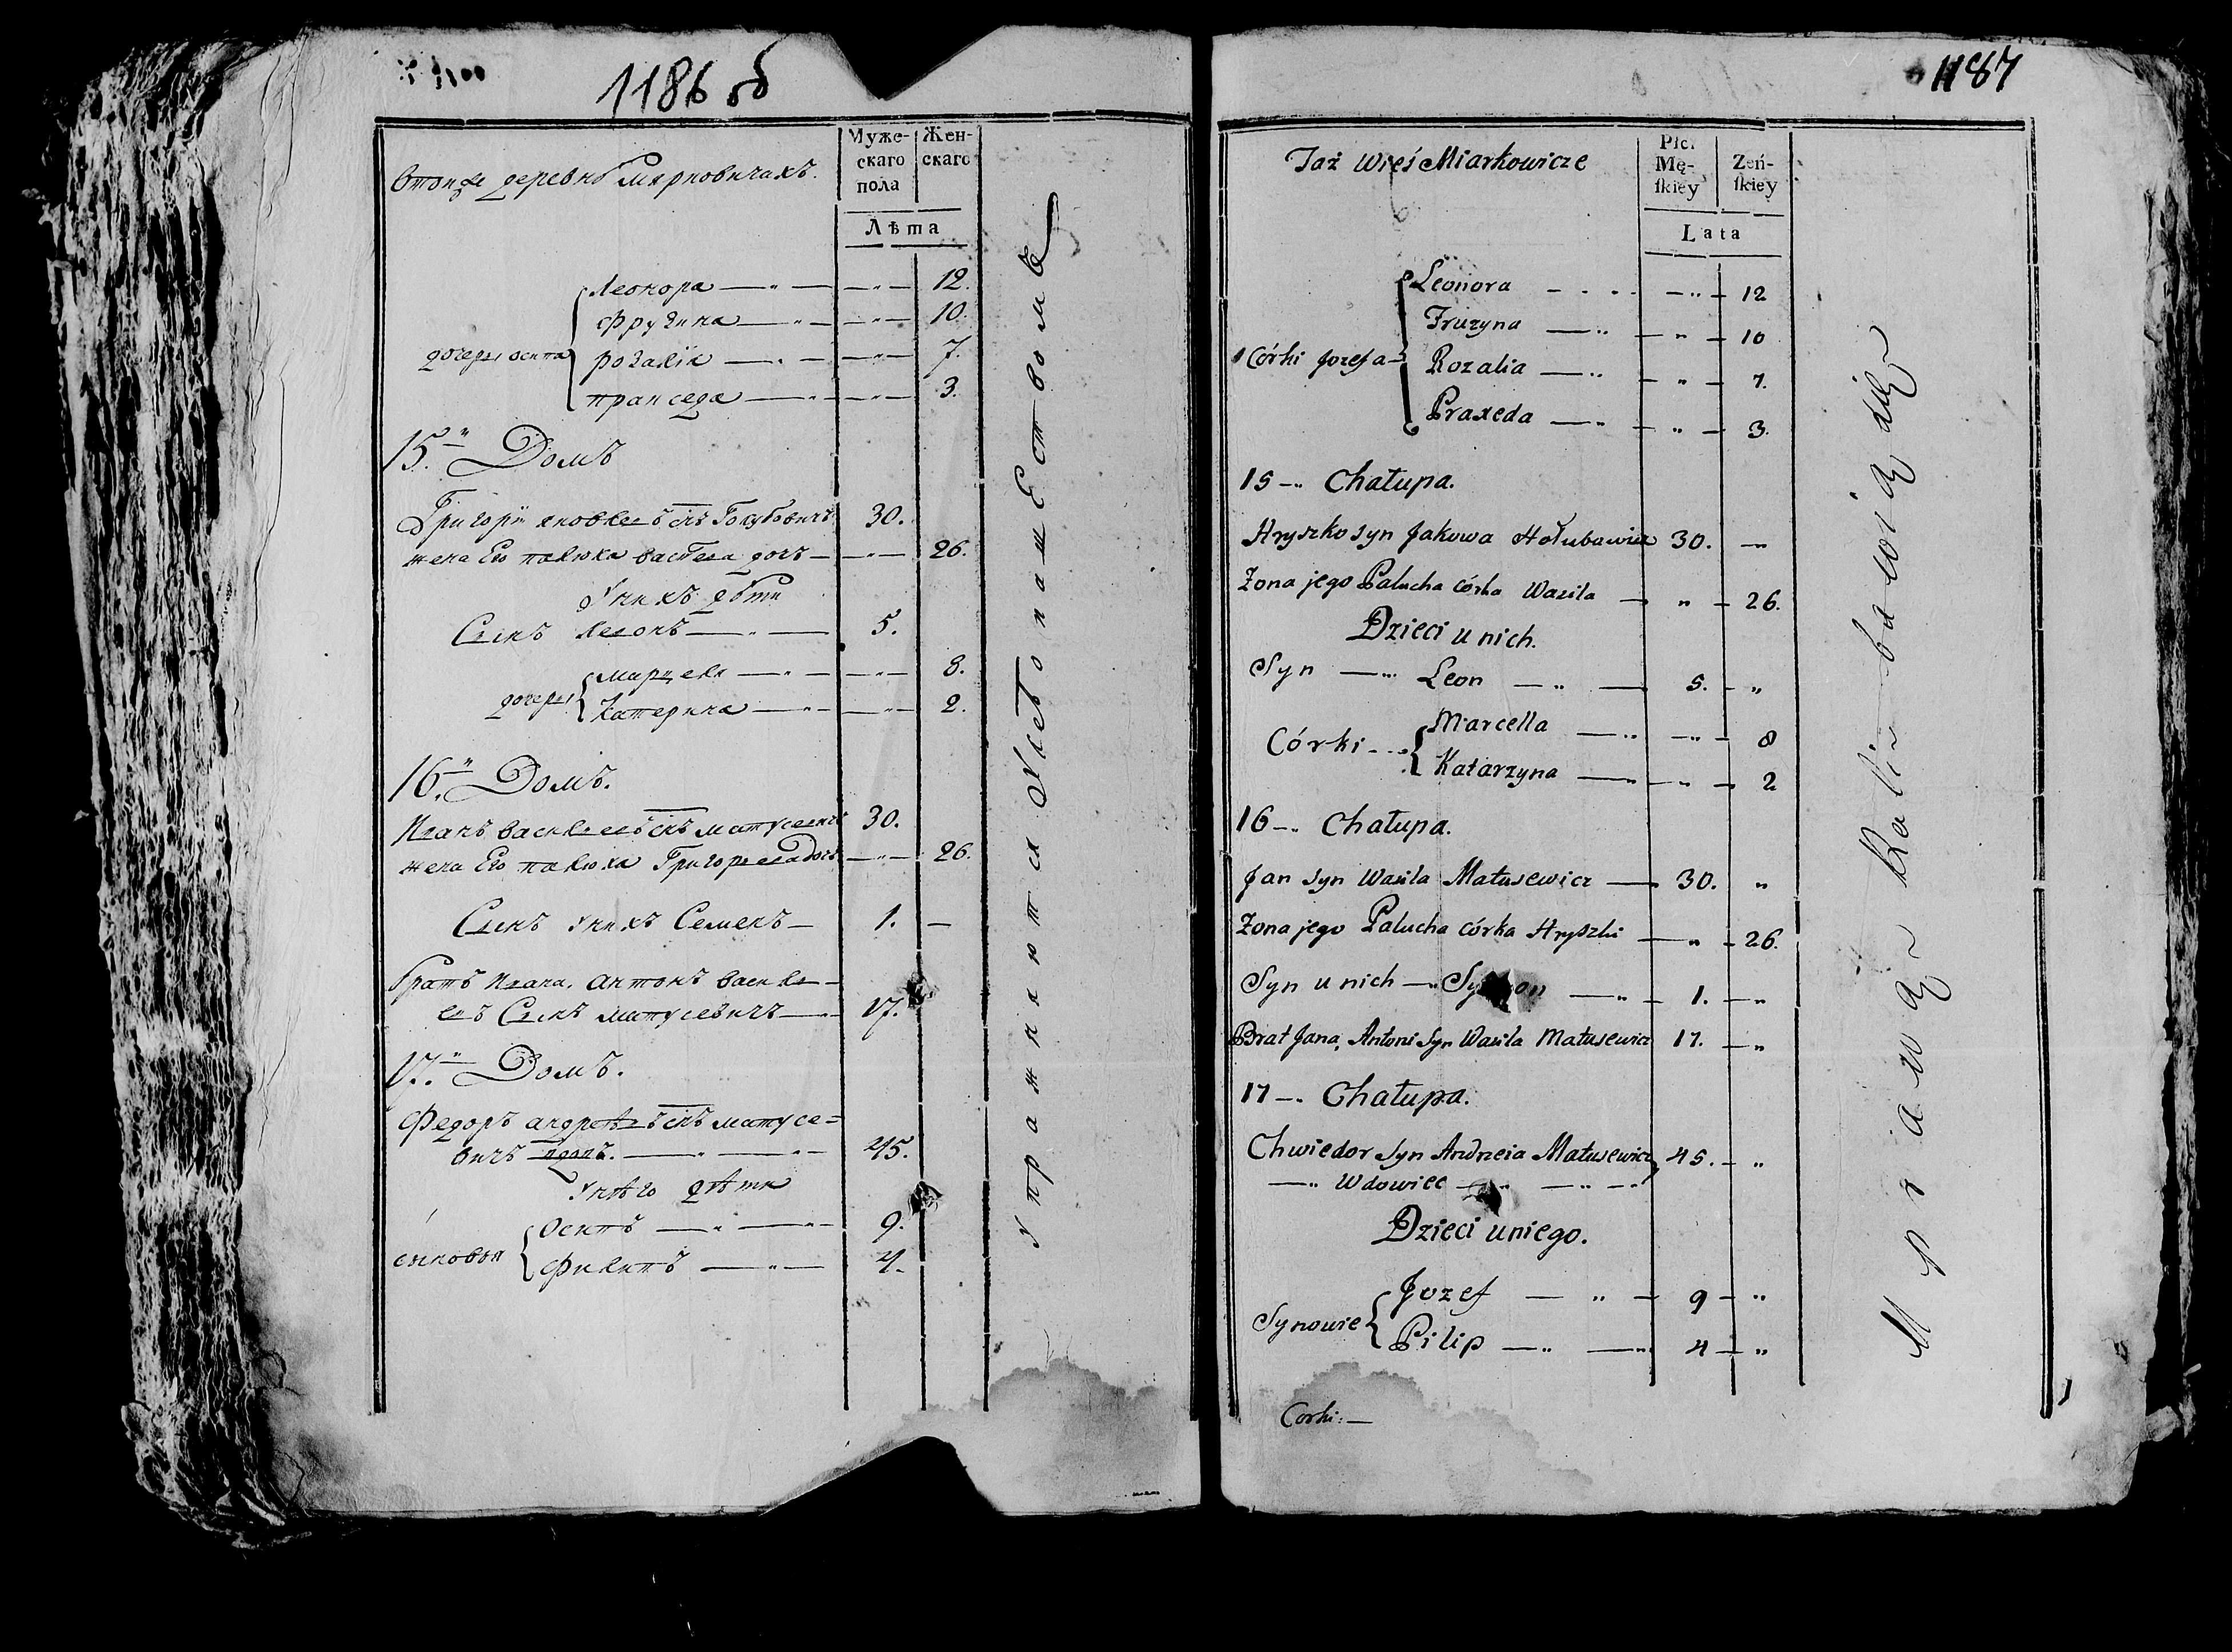 1186 об
Втойже деревне Мярковичахъ.
Муже-
скаго
пола
Жен-
скаго
Лѣта
Леонора — „ — — „ — 12.
Фрузина — „ — — „ — 10.
дочеры осипа
розалія — „ — — „ — 7.
пракседа — „ — — „ — 3.
15.„ Домъ
Григорій яковлевъ снъ Голубовичъ 30.
жена Его палюха васілева дочь — — „ — 26.
Унихъ дѣти
Сынъ Леонъ — „ — 5.
дочеры
марцеля — „ — — „ — 8.
Катерина — „ — — „ — 2.
16.„ Домъ.
Иванъ васильевъ снъ матусевичъ 30.
жена Его палюха Григорьева дочь — „ — 26.
Сынъ Унихъ Семенъ — 1. —
братъ Ивана. антонъ василь-
евъ Сынъ матусевичъ — 17.
17.„ Домъ.
Федоръ андреевъ снъ матусе=
вичъ вдовъ. — „ — „ — 45.
Унѣго дѣти
сыновья
Осипъ — „ — „ — 9.
Филипъ — „ — 4.
Упражняются хлебопашЕствомъ
1187
Taż Wieś Miarkowicze
Płci
Mę-
skiey
Żeń-
skiey
Lata
Leonora — „ — 12
Fruzyna — „ — „ — 10
Córki Jozefa
Rozalia — „ — „ — 7.
Praxeda — „ — „ — 3.
15 —„ Chałupa.
Hryszko syn Jakowa Hołubawicz 30. — „
Żona jego Palucha córka Wasila — „ — 26.
Dzieci u nich.
Syn — „ Leon — „ — 5. — „
Córki
Marcella — „ — „ — 8
Katarzyna — „ — „ — 2
16 —„ Chałupa.
Jan syn Wasila Matusewicz — 30. „
Żona jego Palucha córka Hryszki — „ — 26.
Syn u nich — „ Symon — „ — 1. — „
Brat Jana, Antoni Syn Wasila Matusewicz 17. — „
17 —„ Chałupa.
Chwiedor Syn Andrzeia Matusewicz, 45. — „
— „ Wdowiec — „ — „ —
Dzieci u niego.
Synowie
Jozef — „ — 9 — „
Pilip — „ — „ 4 — „
Corki: —
Uprawą Roli bawią się